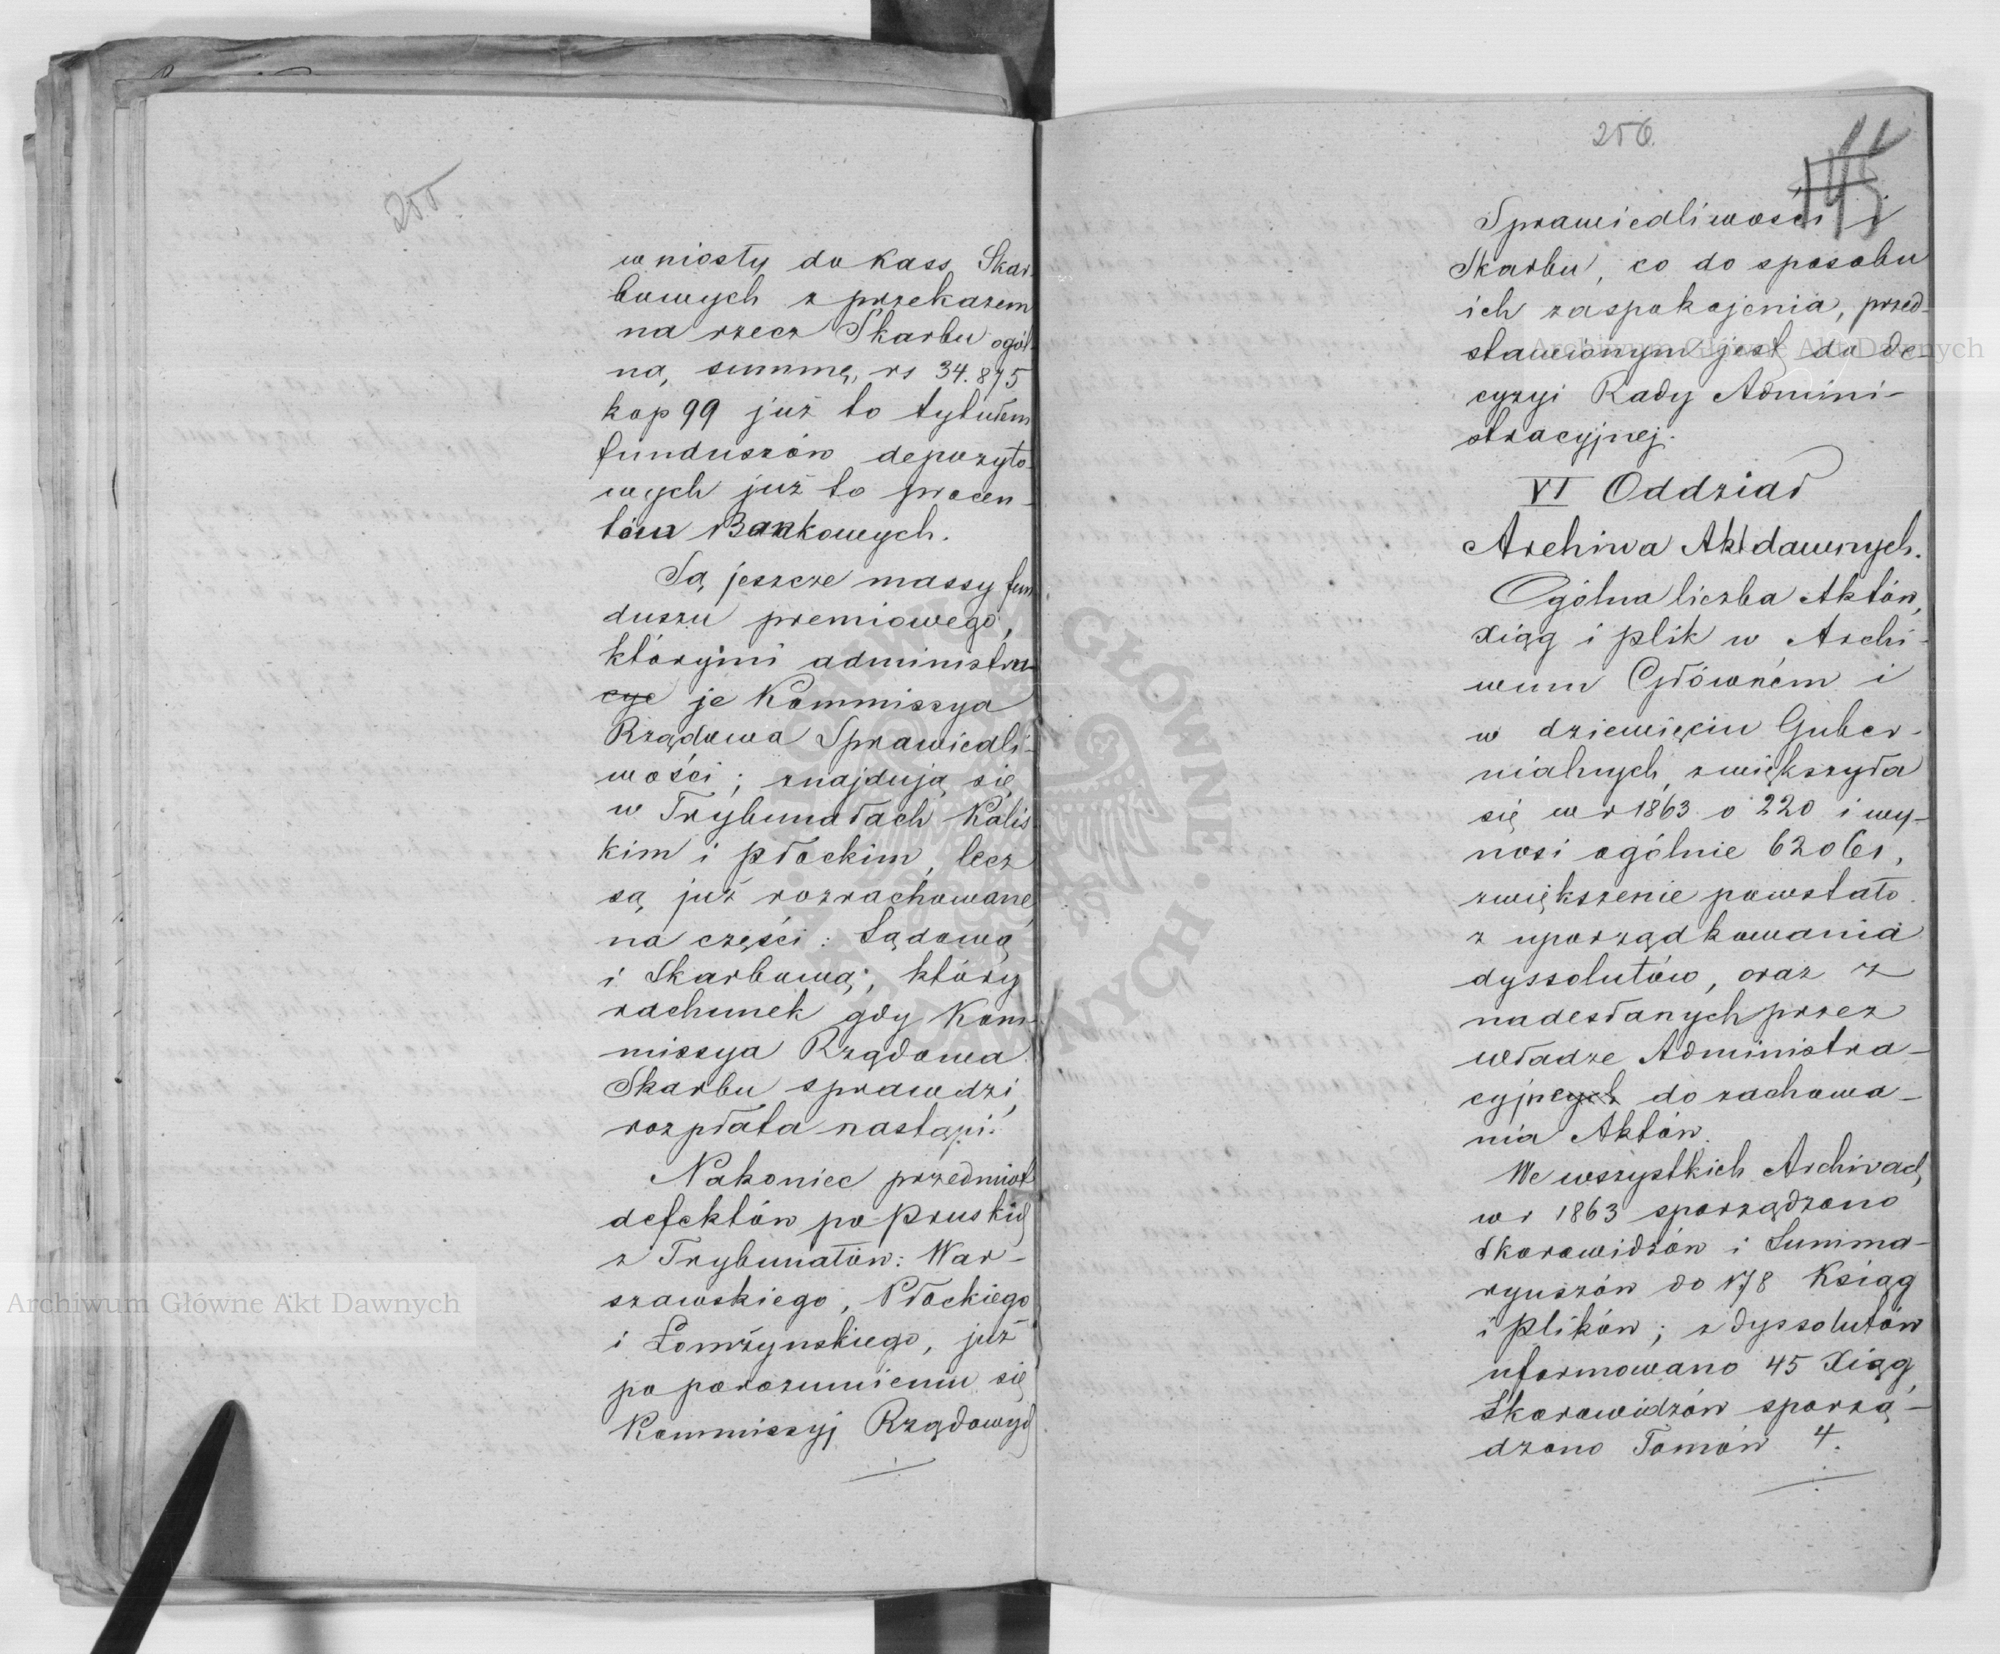 255
wniosły do kass Skar-
bowych z przekazem
na rzecz Skarbu ogól-
ną summę, rs 34.875
kop 99 już to tytułem
funduszów depozyto-
wych już to procen-
tów Bankowych.
Są jeszcze massy fun
duszu premiowego,
któremi administra-
cye je Kommissya
Rządowa Sprawiedli-
wości; znajdują się
w Trybunałach Kalis-
kim i płockim, lecz
są już rozrachowane
na części: Sądową
i Skarbową; który
rachunek gdy Kom-
missya Rządowa
Skarbu sprawdzi,
rozpłata nastąpi.
Nakoniec przedmiot
defektów po-Pruskich
z Trybunałów: War-
szawskiego, Płockiego
i Łomżyńskiego, już
po porozumieniu się
Kommissyj Rządowych
256.
Sprawiedliwości i
Skarbu, co do sposobu
ich zaspokojenia, przed-
stawionym jest do de
cyzyi Rady Admini-
stracyjnej.
VI Oddział
Archiwa Akt dawnych.
Ogólna liczba Aktów,
Xiąg i plik w Archi-
wum Głównem i
w dziewięciu Guber-
nialnych, zwiększyła
się w r 1863 o 220 i wy-
nosi ogólnie
zwiększenie powstało
z uporządkowania
dyssolutów, oraz z
nadesłanych przez
władze Administra-
cyjnych do zachowa-
nia Aktów.
We wszystkich Archiwach
w r 1863 sporządzono
Skorowidzów i Summa-
ryuszów do 178 Ksiąg
i Plików; z dyssolutów
uformowano 45 Xiąg,
Skorowidzów sporzą-
dzono Tomów 4.
Archiwum Główne Akt Dawnych
Archiwum Główne Akt Dawnych
ARCHIWUM GŁÓWNE AKT DAWNYCH